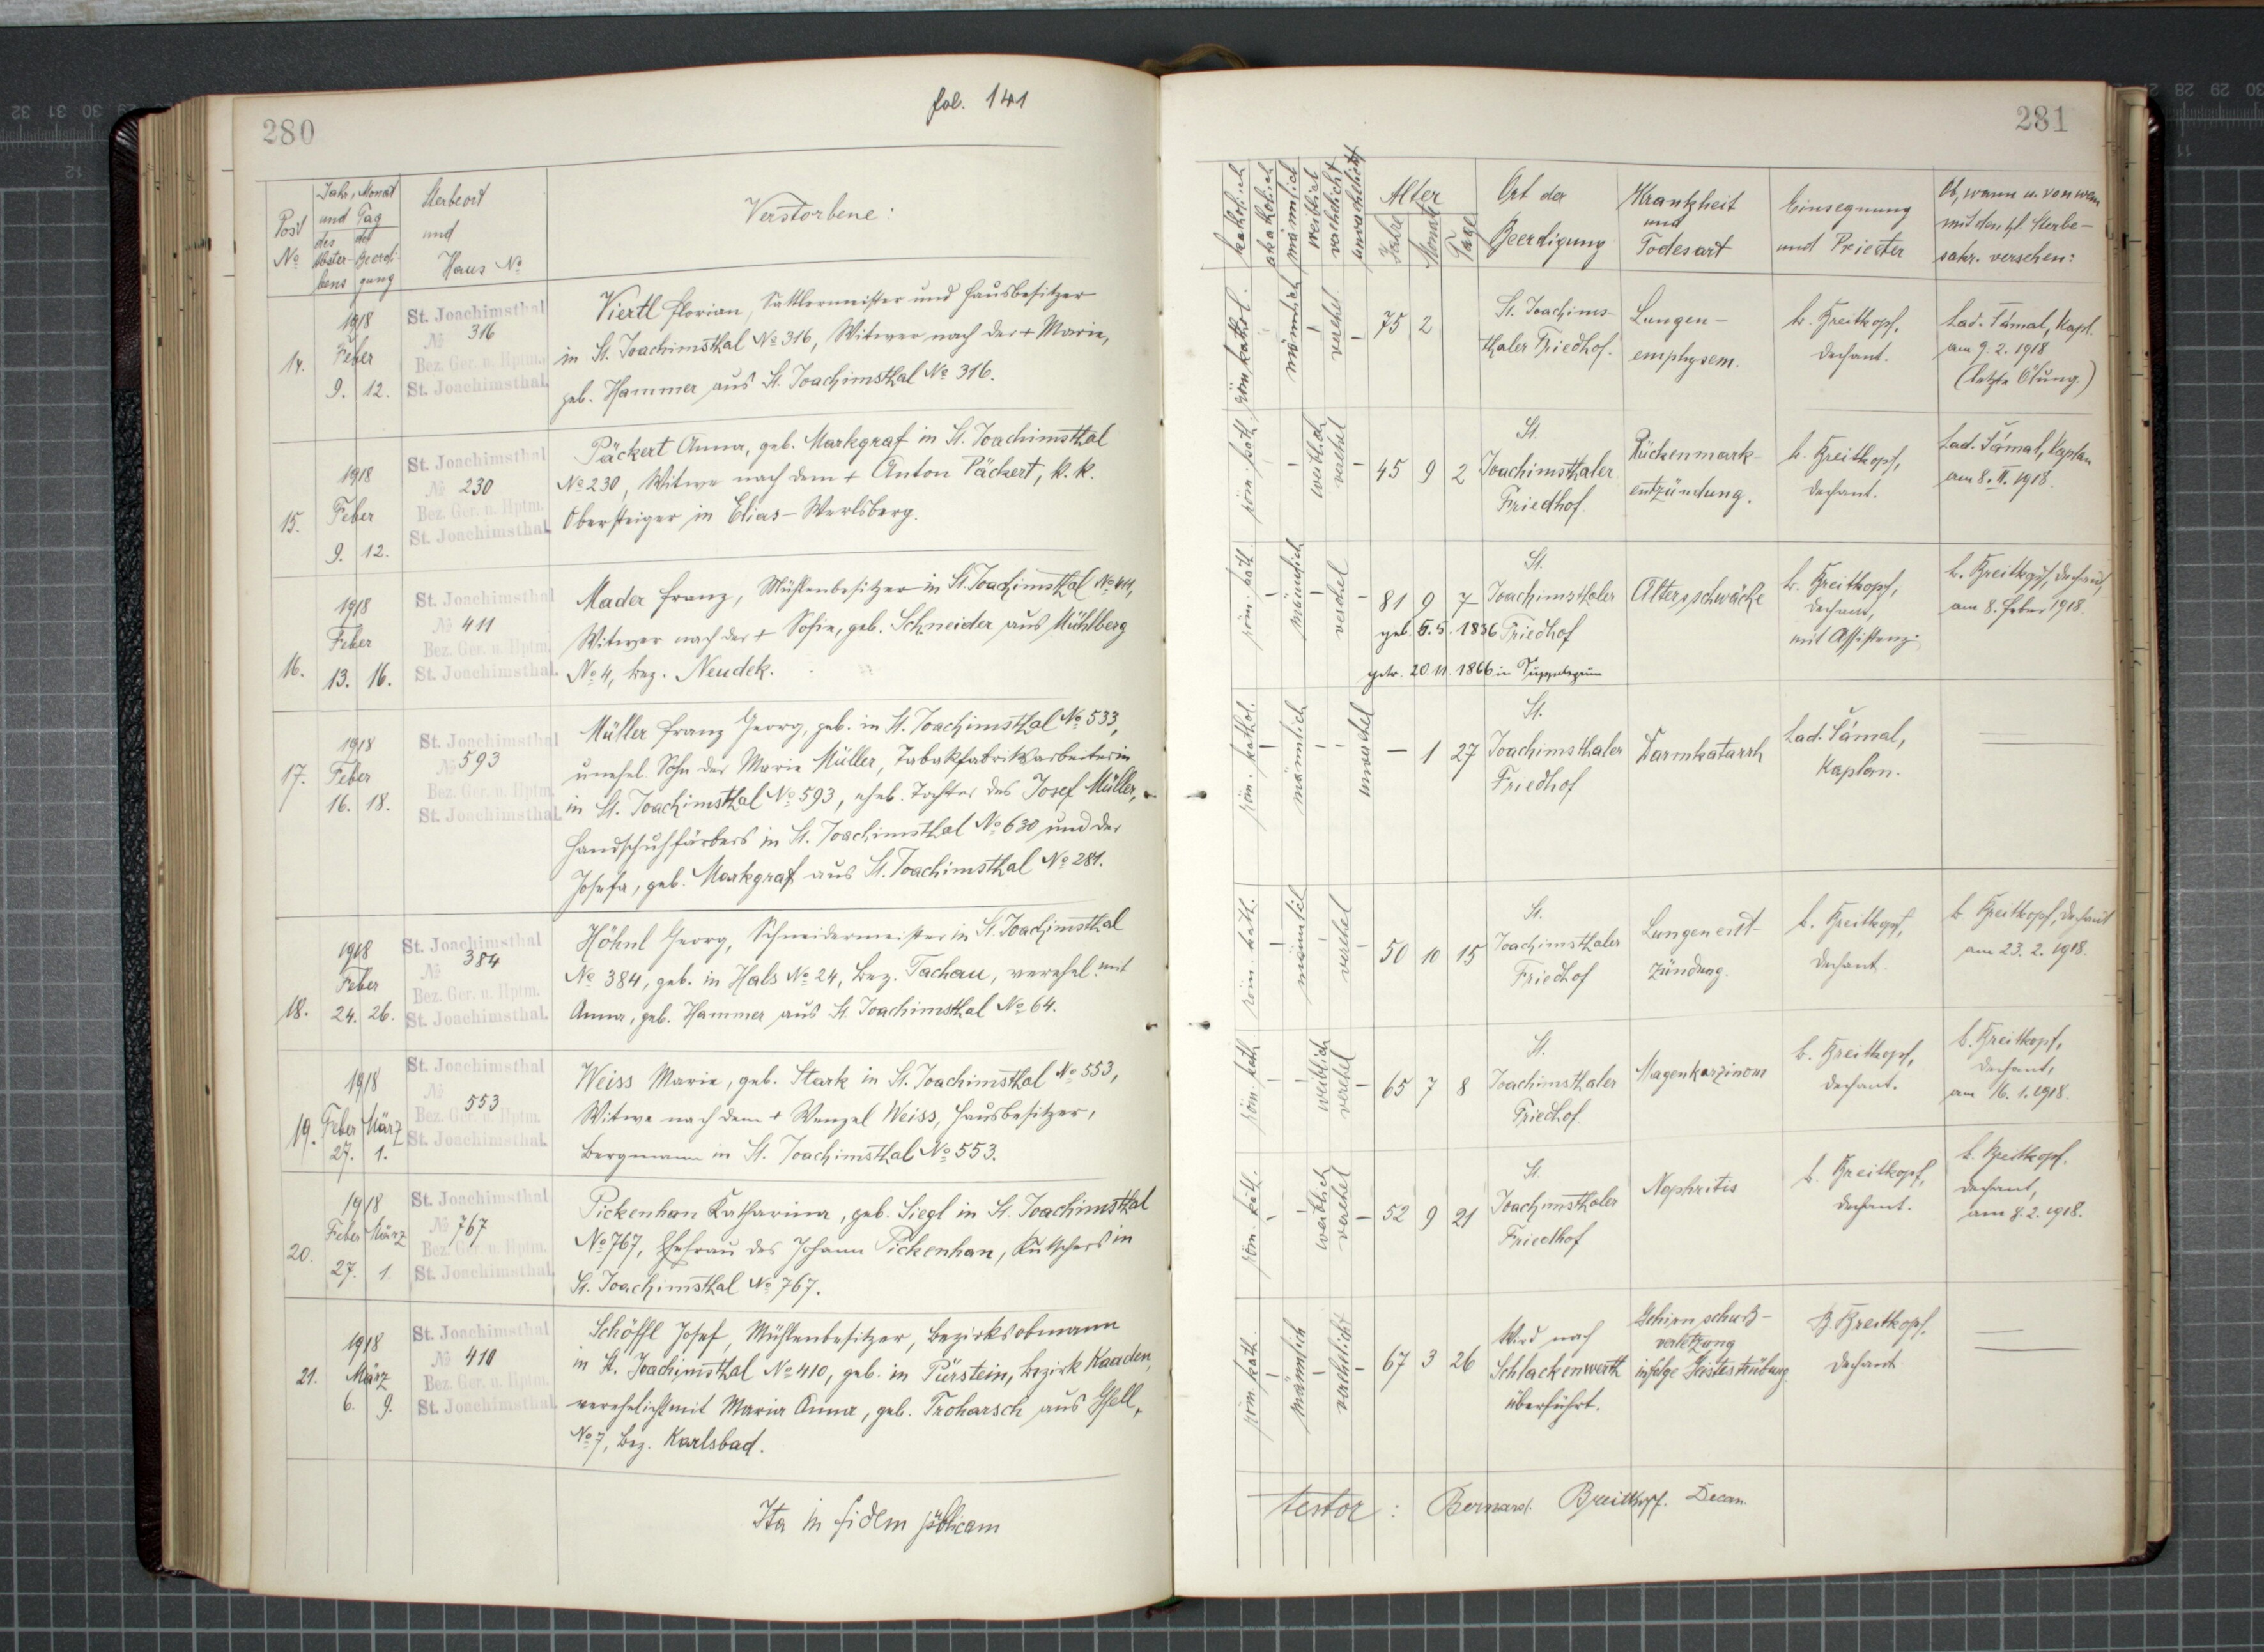 280
fol. 141
Post No
Jahr, Monat
und Tag
des Abster-
bens
der Beerdi-
gung
Sterbeort
und
Haus No
Verstorbene:
14.
1918
Feber
9. 12.
St. Joachimsthal
No 316
Bez. Ger. u. Hptm.
St. Joachimsthal.
Viertl Florian, Sattlermeister und Hausbesitzer
in St. Joachimsthal No 316, Witwer nach der + Marie,
geb. Hammer aus St. Joachimsthal No 316.
15.
1918
Feber
9. 12.
St. Joachimsthal
No 230
Bez. Ger. u. Hptm.
St. Joachimsthal.
Päckert Anna, geb. Markgraf in St. Joachimsthal
No 230, Witwe nach dem + Anton Päckert, k. k.
Obersteiger in Elias-Werlsberg.
16.
1918
Feber
13. 16.
St. Joachimsthal
No 411
Bez. Ger. u. Hptm.
St. Joachimsthal.
Mader Franz, Mühlenbesitzer in St. Joachimsthal No 411,
Witwer nach der + Sofie, geb. Schneider aus Mühlberg
No 4, Bez. Neudek.
17.
1918
Feber
16. 18.
St. Joachimsthal
No 593
Bez. Ger. u. Hptm.
St. Joachimsthal.
Müller Franz Georg, geb. in St. Joachimsthal No 533,
unehel. Sohn der Marie Müller, Tabakfabriksarbeiterin
in St. Joachimsthal No 593, ehel. Tochter des Josef Müller,
Handschuhfärbers in St. Joachimsthal No 630 und der
Josefa, geb. Markgraf aus St. Joachimsthal No 281.
18.
1918
Feber
24. 26.
St. Joachimsthal
No 384
Bez. Ger. u. Hptm.
St. Joachimsthal.
Höhnl Georg, Schneidermeister in St. Joachimsthal
No 384, geb. in Hals No 24, Bez. Tachau, verehel. mit
Anna, geb. Hammer aus St. Joachimsthal No 64.
19.
1918
Feber März
27. 1.
St. Joachimsthal
No 553
Bez. Ger. u. Hptm.
St. Joachimsthal.
Weiss Marie, geb. Stark in St. Joachimsthal No 553,
Witwe nach dem + Wenzel Weiss, Hausbesitzer,
Bergmann in St. Joachimsthal No 553.
20.
1918
Feber März
27. 1.
St. Joachimsthal
No 767
Bez. Ger. u. Hptm.
St. Joachimsthal.
Pickenhan Katharina, geb. Siegl in St. Joachimsthal
No 767, Ehefrau des Johann Pickenhan, Kutschers in
St. Joachimsthal No 767.
21.
1918
März
6. 9.
St. Joachimsthal
No 410
Bez. Ger. u. Hptm.
St. Joachimsthal.
Schöffl Josef, Mühlenbesitzer, Bezirksobmann
in St. Joachimsthal No 410, geb. in Pürstein, Bezirk Kaaden,
verehelicht mit Maria Anna, geb. Troharsch aus Gfell,
No 7, Bez. Karlsbad.
Ita in fidem publicam
281
katholisch
akatholisch
männlich
weiblich
verehelicht
unverehelicht
Alter
Jahre
Monate
Tage
Ort der
Beerdigung
Krankheit
und
Todesart
Einsegnung
und Priester
Ob, wann u. von wem
mit den hl. Sterbe-
sakr. versehen:
röm. kathol.
männlich
verehel.
75 2
St. Joachims-
thaler Friedhof.
Lungen-
emphysem.
B. Breitkopf,
Dechant.
Lad. Šámal, Kapl.
am 9. 2. 1918
(letzte Ölung.)
röm. kath.
weiblich
verehel
45 9 2
St.
Joachimsthaler
Friedhof.
Rückenmark-
entzündung.
B. Breitkopf,
Dechant.
Lad. Šámal, Kaplan
am 8. II. 1918.
röm. kath.
männlich
verehel
81 9 7
geb. 5. 5. 1836
getr. 20. 11. 1866 in
St.
Joachimsthaler
Friedhof
Altersschwäche
B. Breitkopf,
Dechant,
mit Assistenz.
B. Breitkopf, Dechant,
am 8. Feber 1918.
röm. kathol.
männlich
unverehel
— 1 27
St.
Joachimsthaler
Friedhof
Darmkatarrh
Lad. Šámal,
Kaplan.
röm. kath.
männlich
verehel
50 10 15
St.
Joachimsthaler
Friedhof
Lungenent-
zündung.
B. Breitkopf,
Dechant.
B. Breitkopf, Dechant
am 23. 2. 1918.
röm. kath.
weiblich
verehel
65 7 8
St.
Joachimsthaler
Friedhof.
Magenkarzinom
B. Breitkopf,
Dechant.
B. Breitkopf,
Dechant,
am 16. 1. 1918.
röm. kath.
weiblich
verehel
52 9 21
St.
Joachimsthaler
Friedhof
Nephritis
B. Breitkopf,
Dechant.
B. Breitkopf.
Dechant,
am 8. 2. 1918.
röm. kath.
männlich
verehelicht
67 3 26
Wird nach
Schlackenwerth
überführt.
Gehirnschuß-
verletzung
infolge Geistestrübung
B. Breitkopf,
Dechant
testor: Bernard. Breitkopf. Decan.